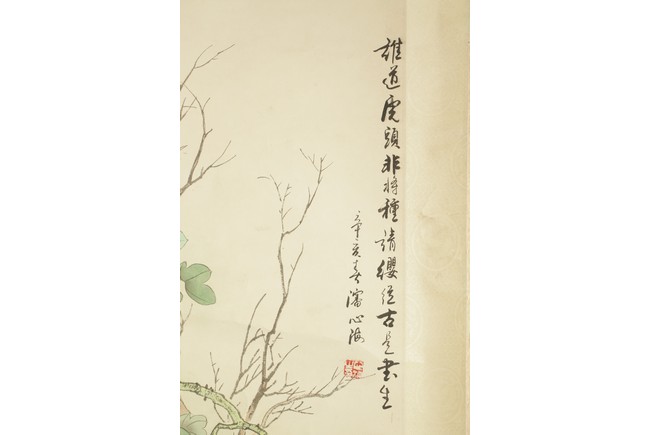 誰道虎頭非將種請纓從古是書生
辛亥春潘心海